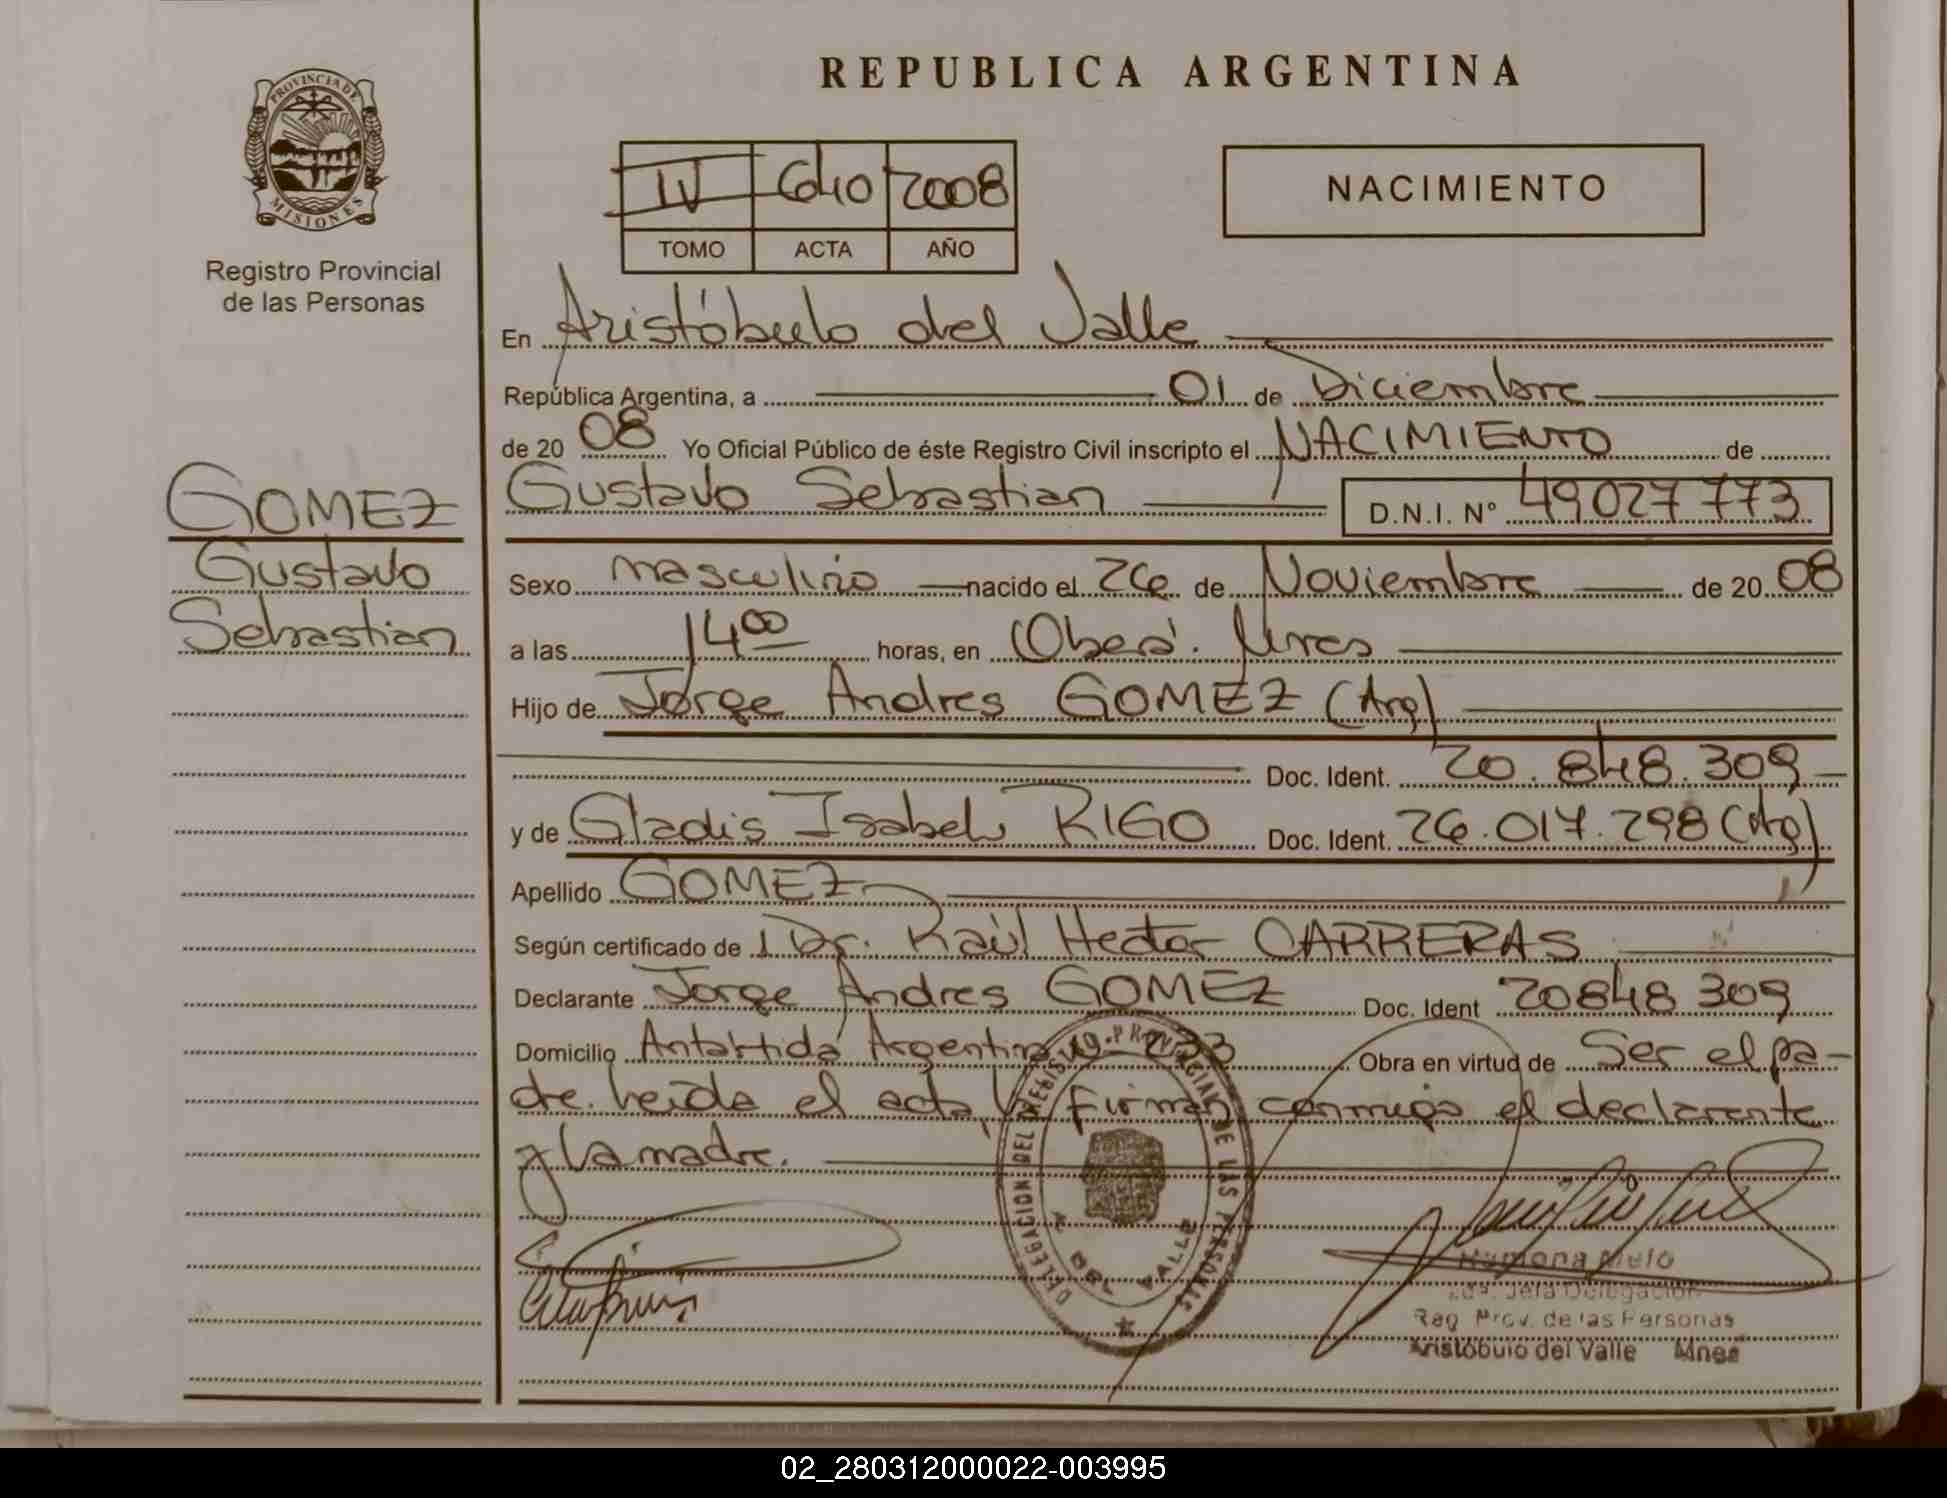 REPUBLICA ARGENTINA
PROVINCIA DE MISIONES
Registro Provincial
de las Personas
IV 640 2008
TOMO ACTA AÑO
NACIMIENTO
En Aristóbulo del Valle
República Argentina, a 01 de Diciembre
de 20 08 Yo Oficial Público de éste Registro Civil inscripto el NACIMIENTO de
Gustavo Sebastian D.N.I. Nº 49027773
GOMEZ
Gustavo
Sebastian
Sexo masculino nacido el 26 de Noviembre de 20 08
a las 14 00 horas, en Oberá. Mnes
Hijo de Jorge Andres GOMEZ (Arg)
Doc. Ident. 20.848.309
y de Gladis Isabel RIGO Doc. Ident. 26.017.298 (Arg)
Apellido GOMEZ
Según certificado de Dr. Raúl Hector CARRERAS
Declarante Jorge Andres GOMEZ Doc. Ident 20848309
Domicilio Antártida Argentina 233 Obra en virtud de Ser el pa-
dre. leída el acta, firman conmigo el declarante
y la madre.
DELEGACION DEL REGISTRO PROVINCIAL DE LAS PERSONAS
A. DEL VALLE
Ramona Melo
Jefa Delegación
Reg. Prov. de las Personas
Aristóbulo del Valle Mnes
02_280312000022-003995